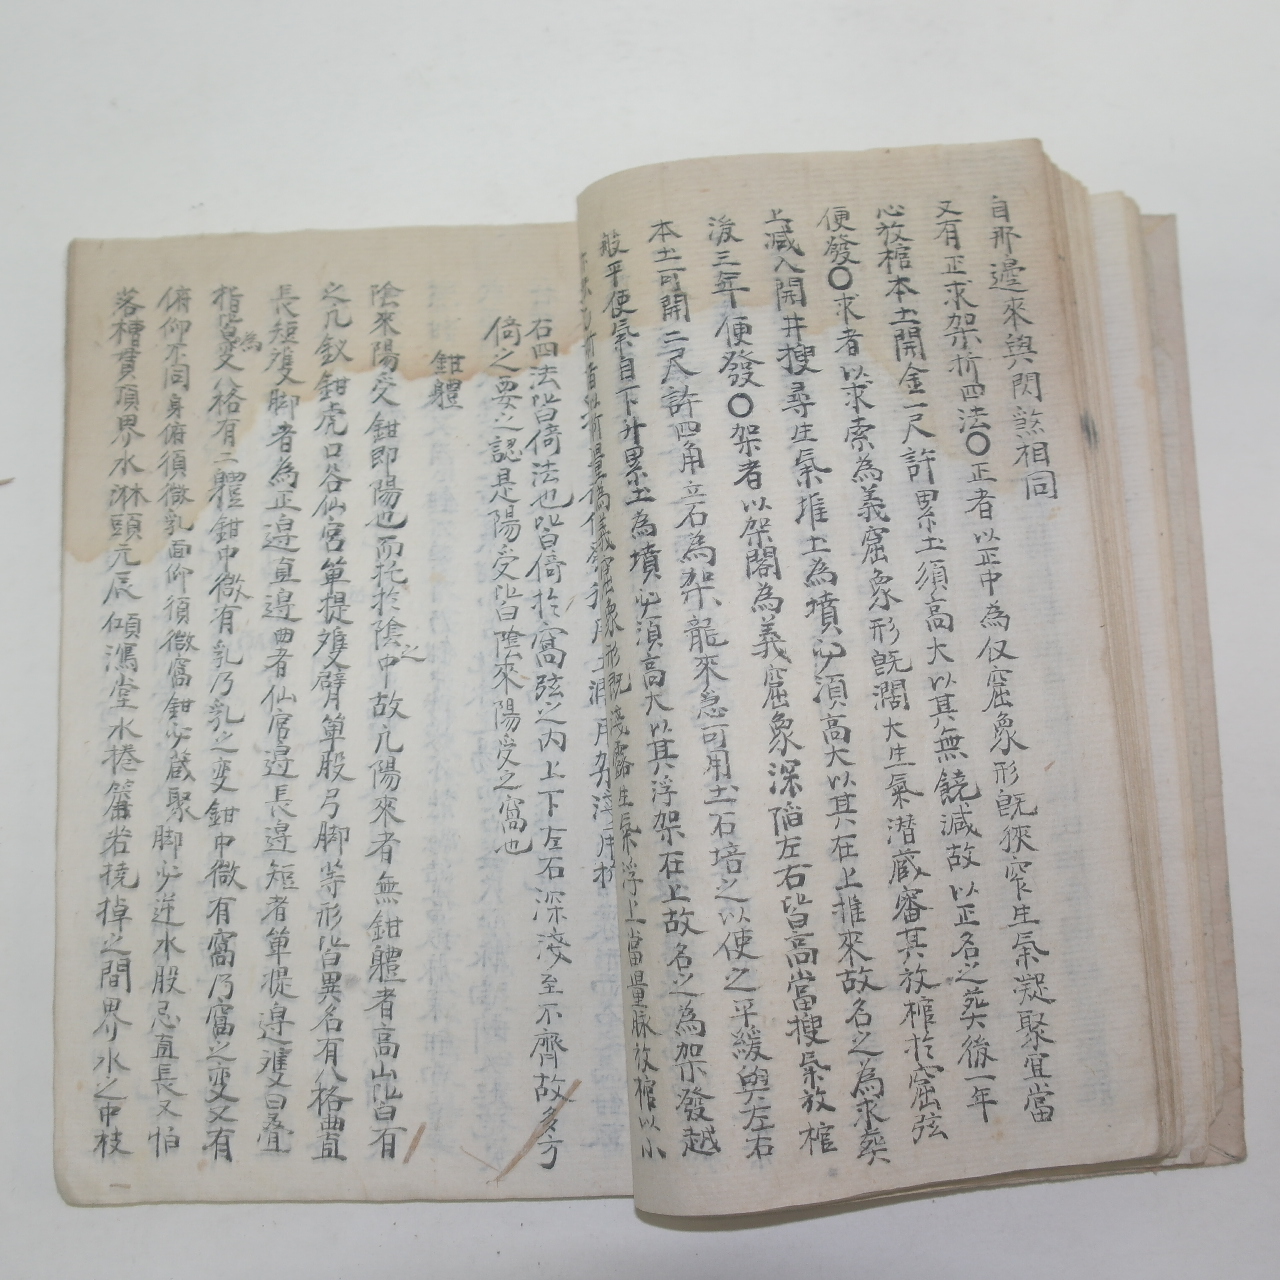 自那邊來與閃煞相同
又有正求架折四法〇正者以正中為仪窟象形既狹窄生氣凝聚宜當
心放棺本土開金一尺許累土須高大以其無饒減故以正名之葬後一年
便發〇求者以求索為義窟象形既濶大生氣潜蔵審其放棺扵窟弦
上减入開井搜尋生氣堆土為墳必須高大以其在上推來故名之為求葬
後三年便發〇架者以架閣為義窟象深陷左右皆高當搜氣放棺
本土可開二尺許四角立石為架龍來急可用土石培之以使之平緩與左右
般平使氣自下升累土為墳必須高大以其浮架在上故名之為架發越
窟象形既淺露生氣浮上當量脉放棺以小
右四法皆倚法也皆倚扵窩弦之内上下左右深淺至不齊故多方
倚之要之認是陽受皆陰來陽受之窩也
鉗體
陰來陽受鉗即陽也而托扵陰之中故亢陽來者無鉗體者高山皆有
之凡釵鉗虎口谷仙宮單提雙臂單股弓脚等形皆異名有八格曲直
長短雙脚者為正邊直邊曲者仙宮邊長邊短者單提邊雙曰疊
指皆為变格有二體鉗中微有乳乃乳之变鉗中微有窩乃窩之变又有
俯仰不同身俯須微乳面仰須微窩鉗必蔵聚脚必逆水股忌直長又怕
落槽貫頂界水淋頭亢辰傾瀉堂水捲簾若撓掉之間界水之中枝